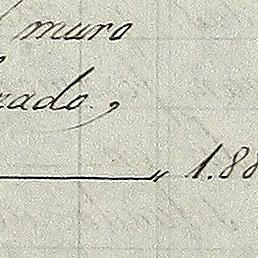 muro
rado.,
" 1.88